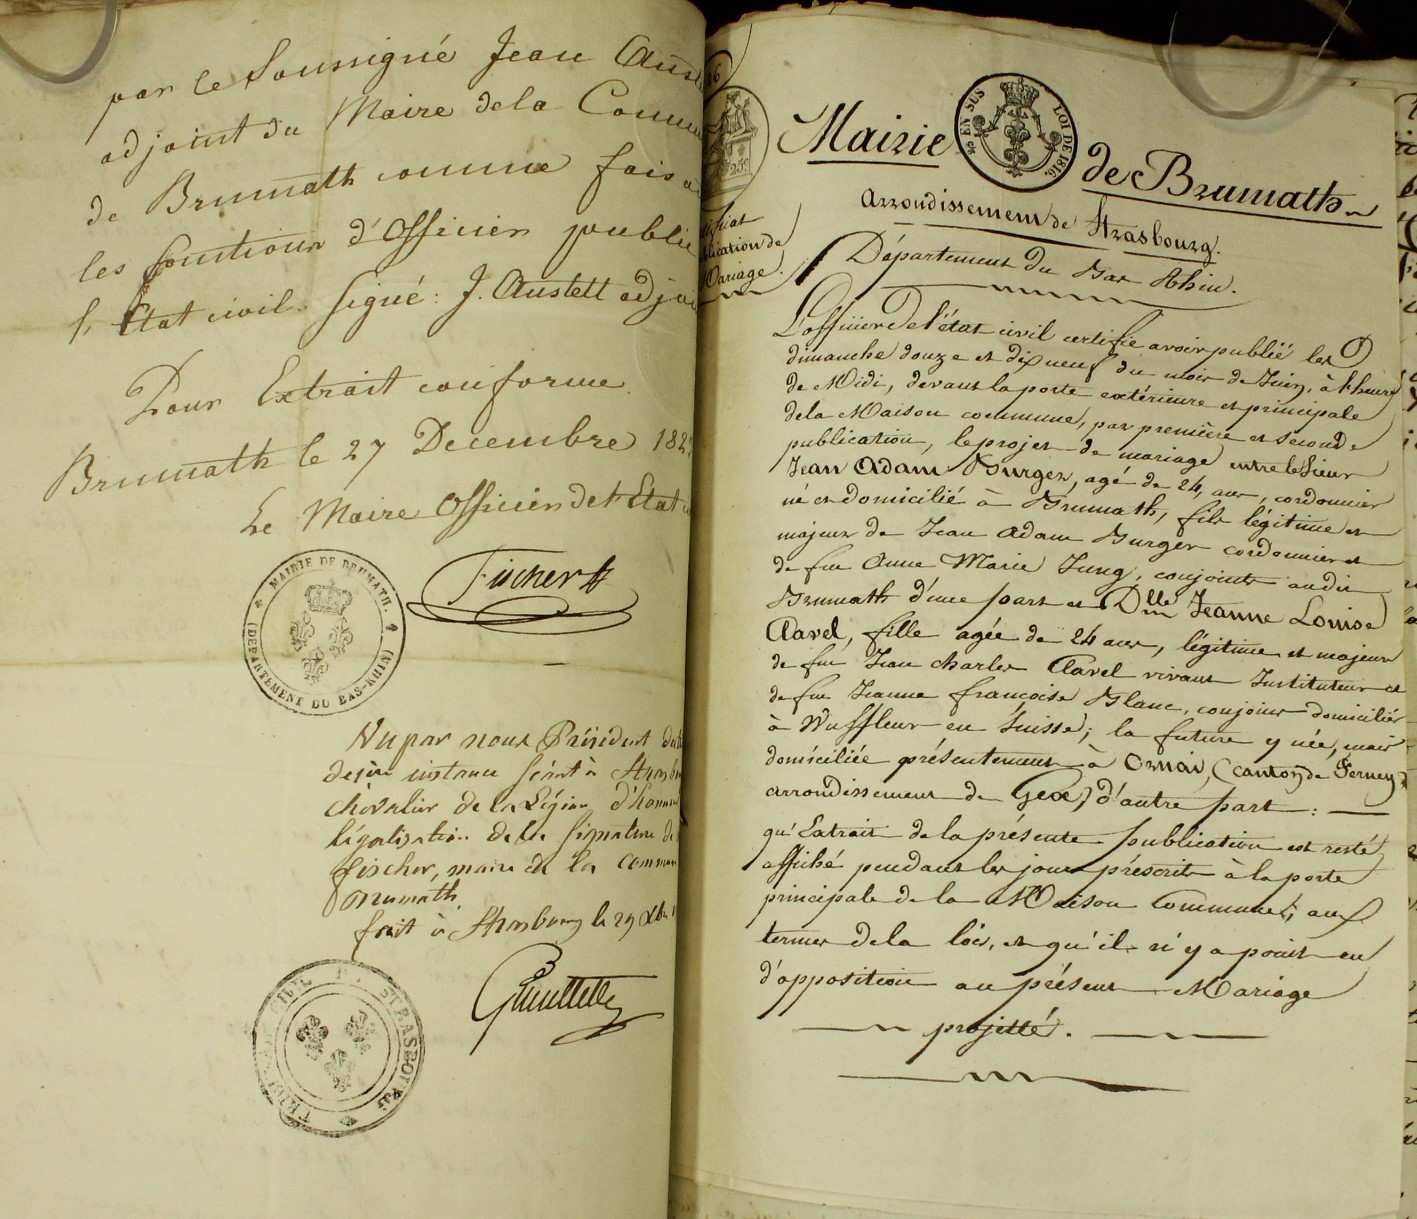 par le Soussigné Jean
adjoint du Maire de la
de Brumath comme
les fonctions d'Officier public
l'Etat civil. Signé: J. Austett
Pour Extrait conforme
Brumath le 27 Decembre
Le Maire Officier de l'Etat
Fischer
MAIRIE DE BRUMATH.
(DEPARTEMENT DU BAS-RHIN)
Vu par nous Président
de 1ère instance séant à
chevalier de la Légion
légalisation de la signature
fischer, maire de la
Brumath.
fait à Strasbourg le 29
STRASBOURG
EN SUS LOI DE 1816.
Mairie de Brumath
Arrondissement de Strasbourg.
Département du Bas Rhin.
Mariage.
L'officier de l'état civil certifie avoir publié les
dimanche douze et dix neuf du mois de Juin, à l'heure
de Midi, devant la porte extérieure et principale
de la Maison commune, par première et seconde
publication, le projet de mariage entre le Sieur
Jean Adam Burger, agé de 24, ans, cordonnier
né et domicilié à Brumath, fils légitime et
majeur de Jean Adam Burger cordonnier et
de fue Anne Marie Jung, conjoints audit
Brumath d'une part et Dlle Jeanne Louise
Clavel, fille agée de 24 ans, légitime et majeure
de fu Jean Charles Clavel vivant Instituteur et
de fue Jeanne françoise Blanc, conjoins domiciliés
à Wufflens en Suisse; la future y née, mais
domiciliée présentement à Ornai, (canton de Ferney
arrondissement de Gex,) d'autre part:
qu'Extrait de la présente publication est resté
affiché pendant les jours préscrits à la porte
principale de la Maison Commune; aux
termes de la loi, et qu'il n'y a point eu
d'opposition au présent Mariage
projetté.